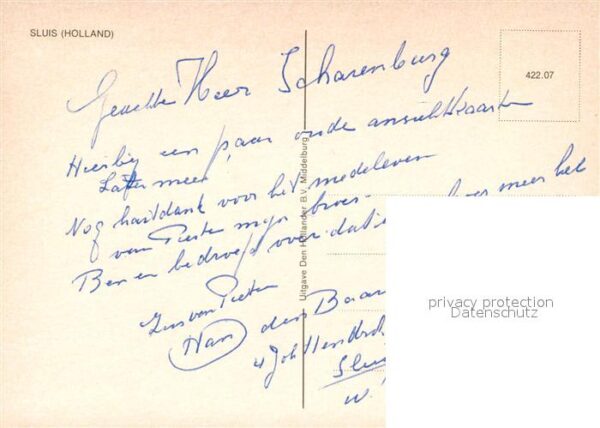 SLUIS (HOLLAND)
422.07
Geachte Heer Scharenburg
Hierbij een paar oude ansichtkaarten
Later meer
Nog hartdank voor het medeleven
van Pieter mijn broer
Ben en bedroefd over dat over meer het
Zus van Pieter
Han den Baar
Joh Hendrik
Sluis
Uitgave Den Hollander B.V. Middelburg
privacy protection
Datenschutz